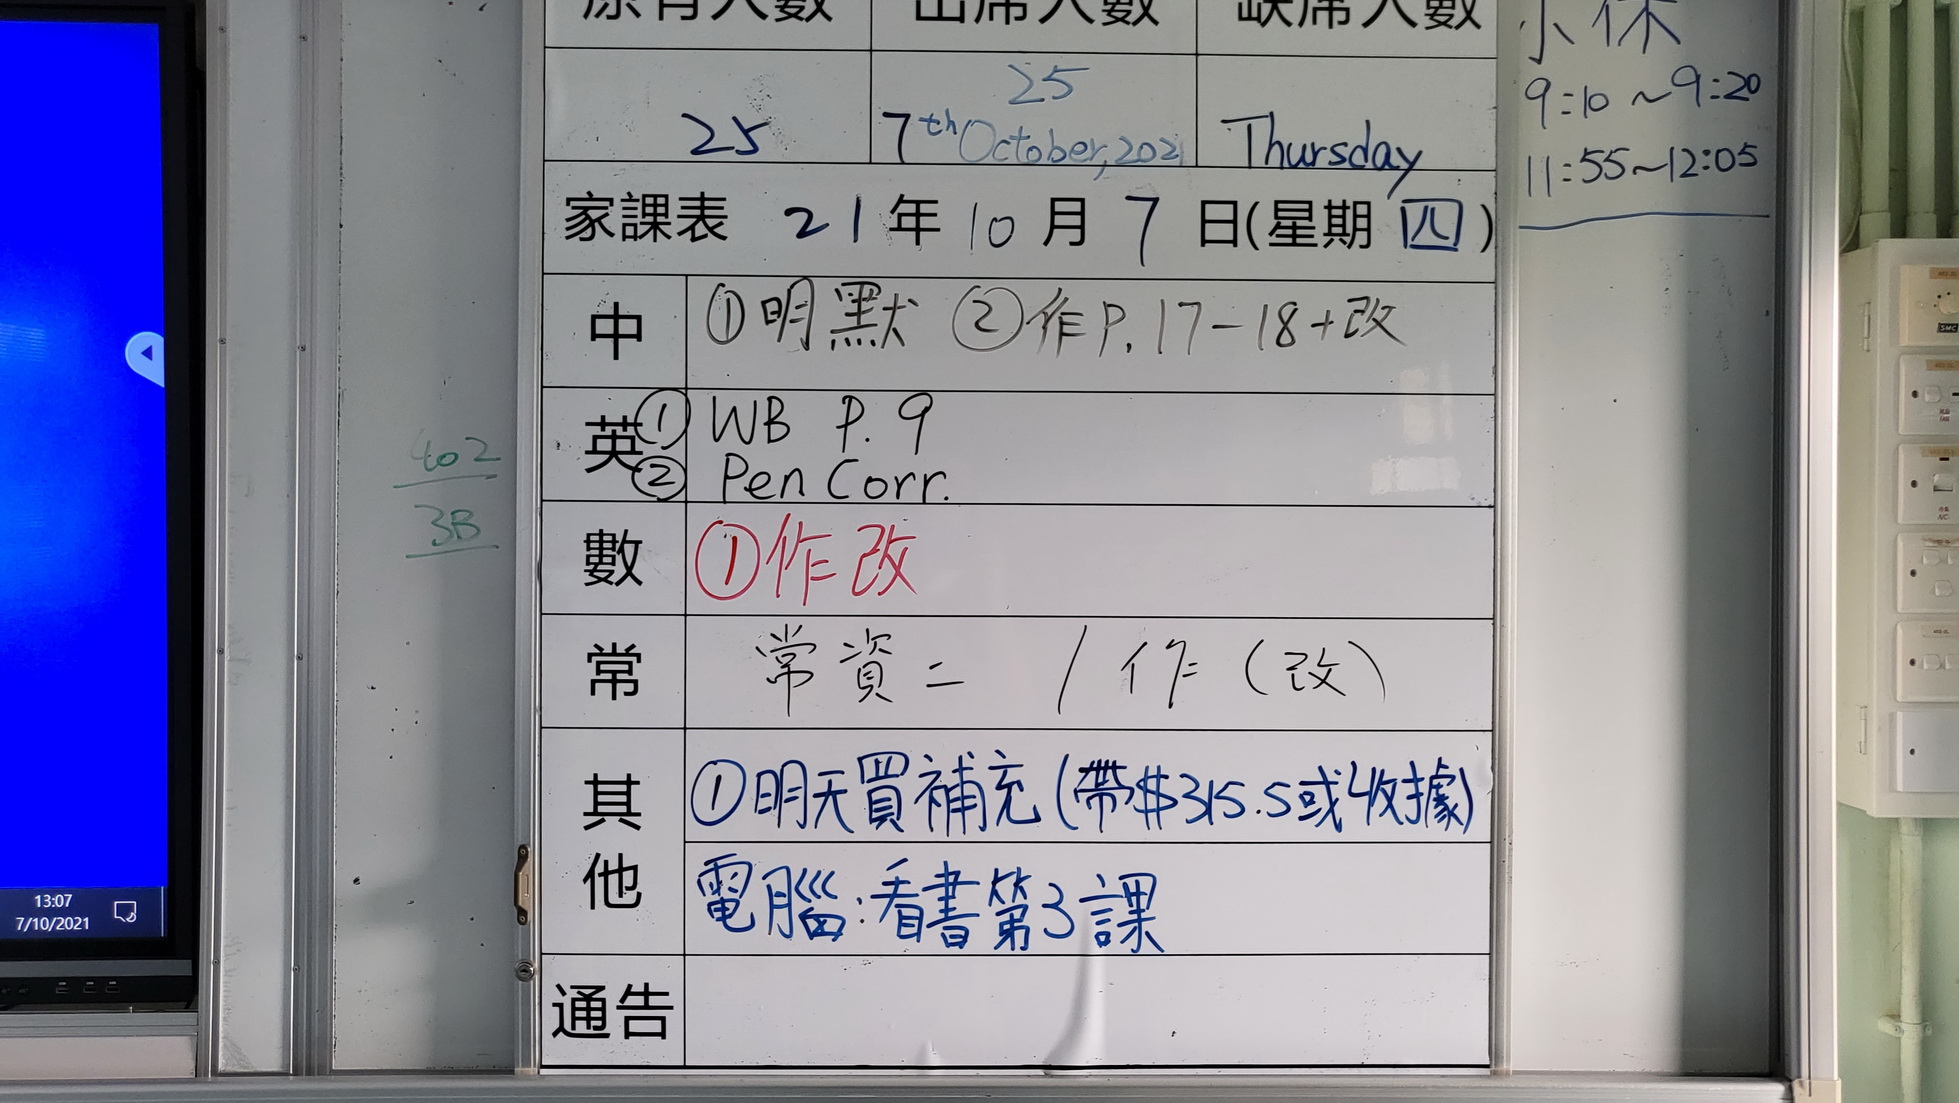 原有人數 出席人數 缺席人數
25 25
7th October, 2021 Thursday
小休
9:10 ~ 9:20
11:55~12:05
家課表 21年10月7日(星期四)
中 ①明默 ②作P.17-18+改
英 ① WB P.9
② Pen Corr.
數 ①作改
常 常資二 / 作(改)
其他 ①明天買補充(帶$315.5或收據)
電腦:看書第3課
通告
402
3B
13:07
7/10/2021